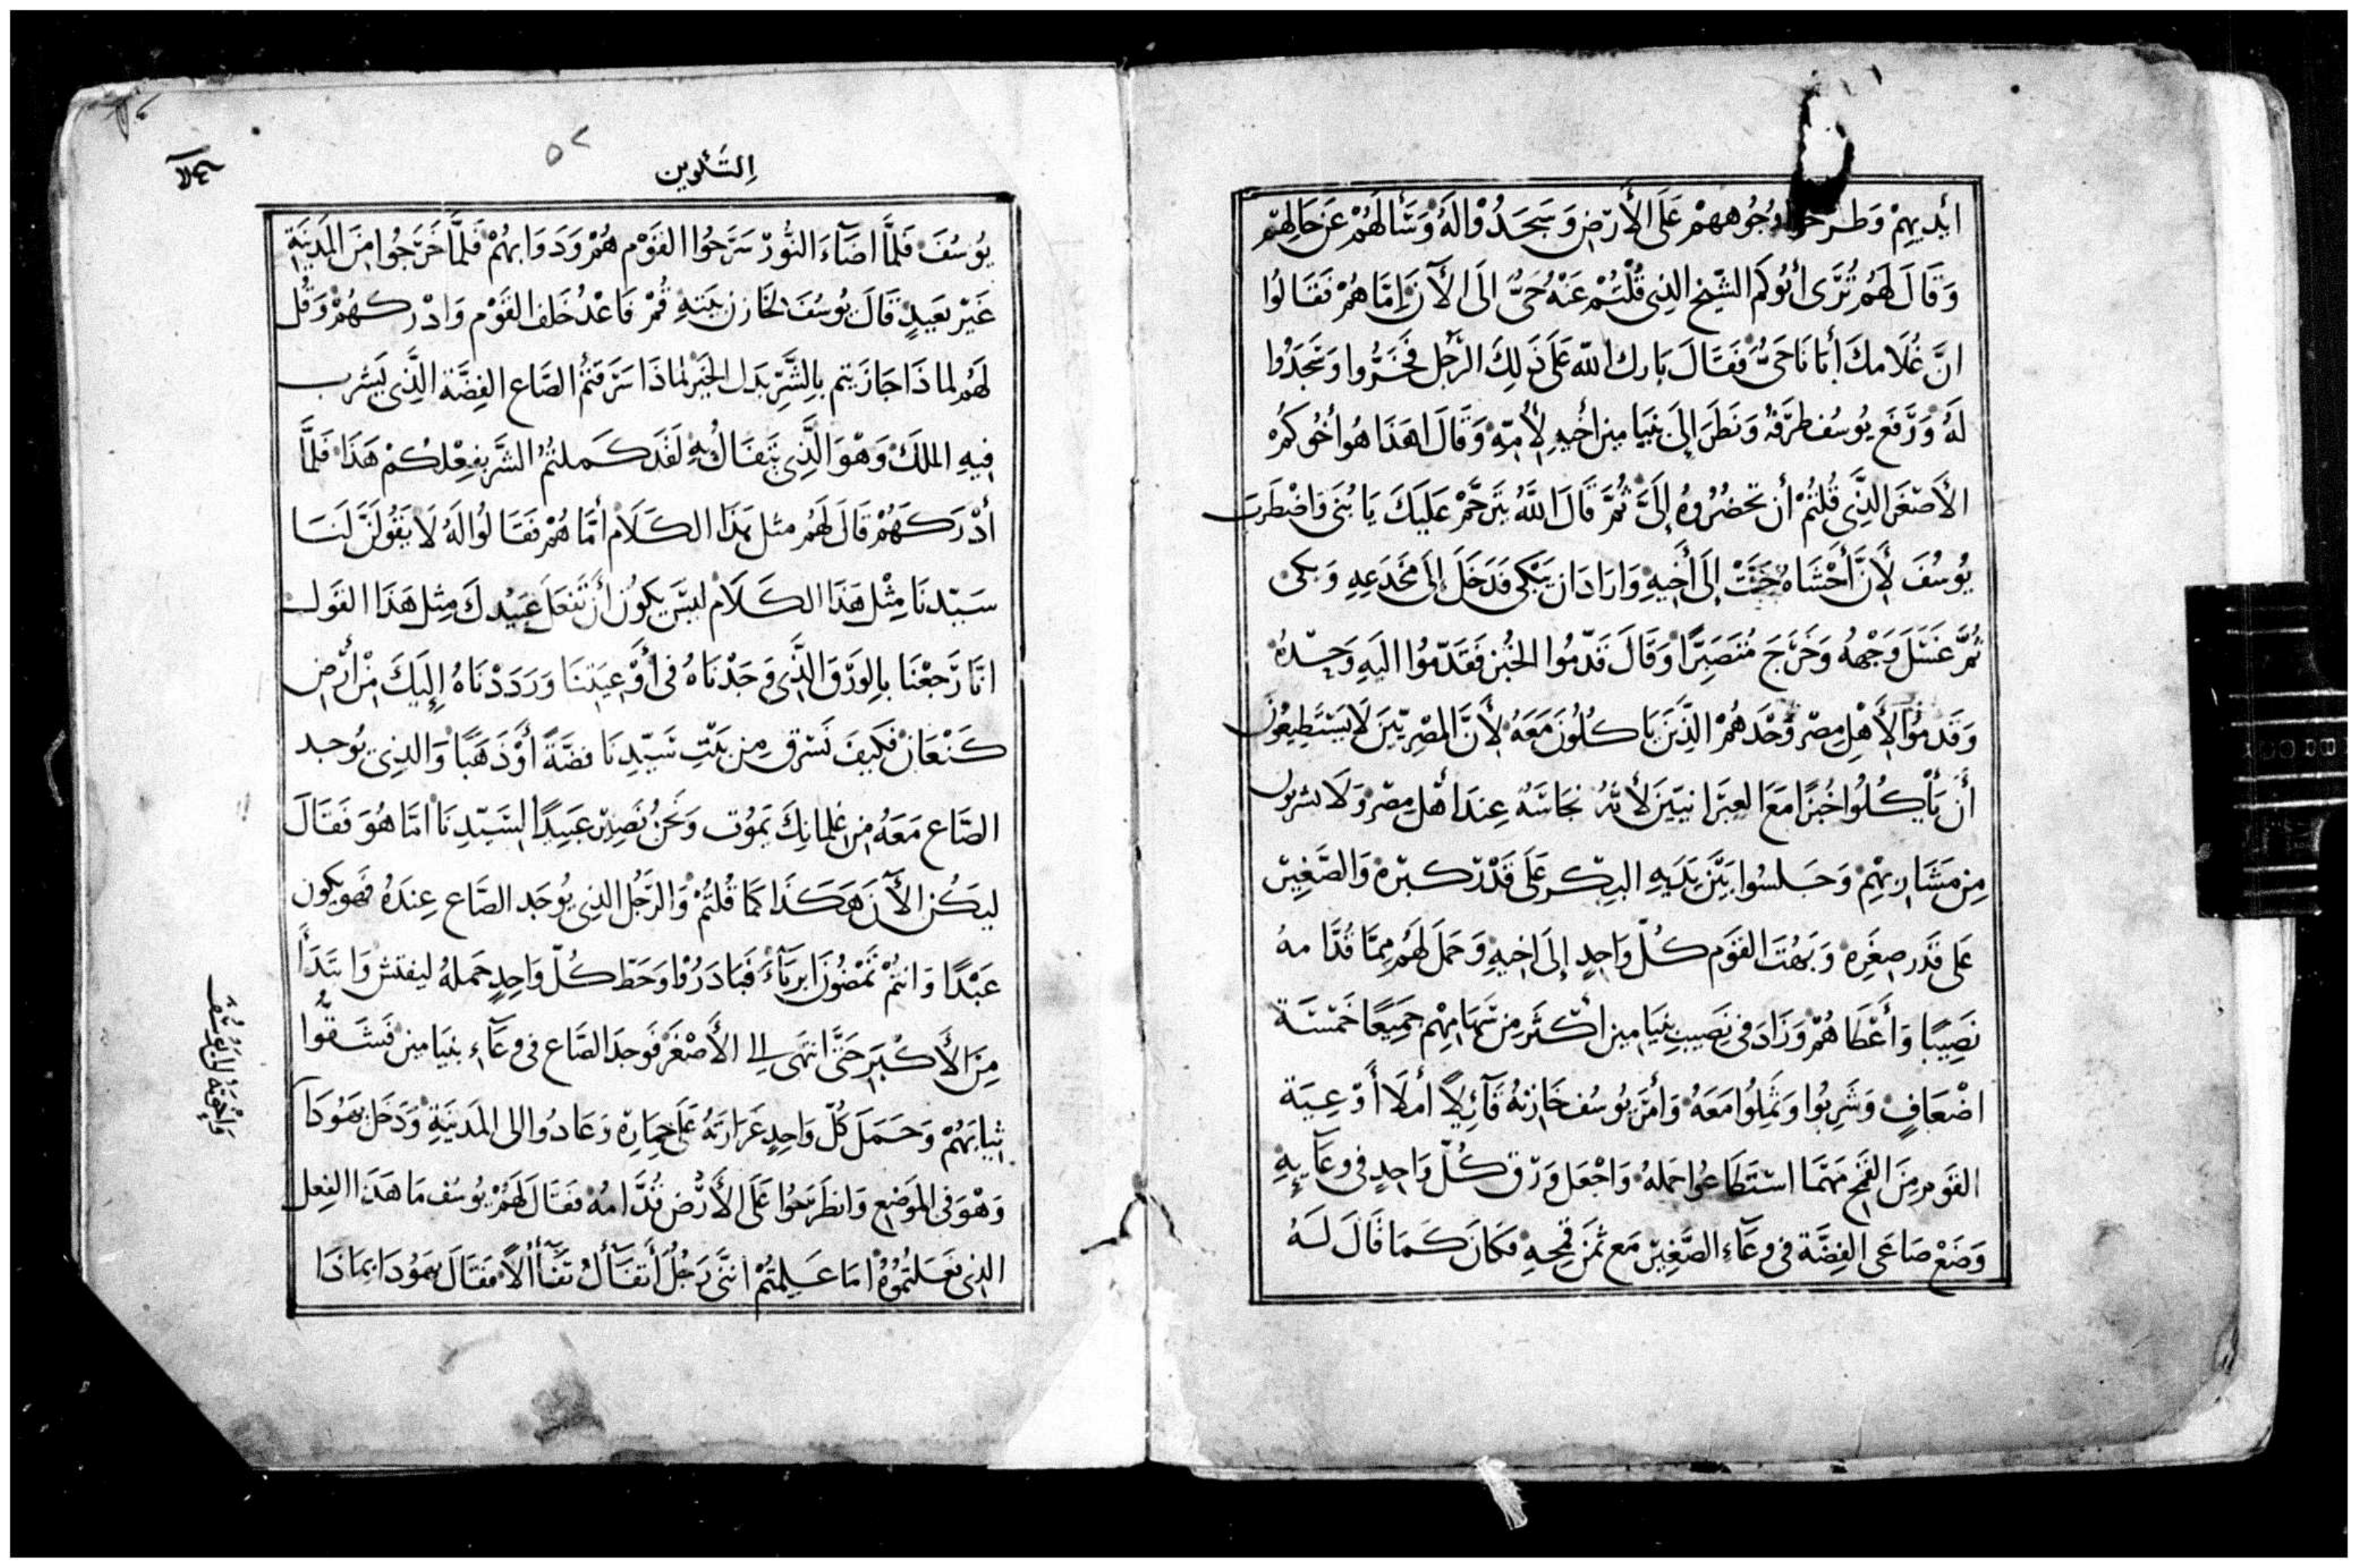 ايْديهِمْ وَطَرَحُوا وُجُوهَهمْ عَلَى الأَرْضِ وَسَجَدُوْا لَهُ وَسَأَلَهُمْ عَن حَالِهِمْ
وَقَالَ لَهُم تُرَى أبُوكمُ الشّيخ الذِى قُلْتُمْ عَنْهُ حَىٌّ الَى الآنَ امَّا هُمْ فَقَالوُا
انَّ غُلَامكَ أَبَانَا حَىٌّ فَقَالَ بَارك اللّه عَلَى ذَلِكَ الرَّجُل فَخَرُّوا وَسَجَدُوا
لَهُ وَرَفَع يُوسُف طرَفهُ وَنَظَرَ إلىَ بنيَامينَ أخِيهِ لأُمّهِ وَقَالَ اهَذَا هُوأخُوكمُ
الأَصْغَر الذَّى قُلتُمْ أن تحضُرُوهُ إلَىَّ ثُمَّ قَالَ اللَّهُ يَتَرحَّمْ عَلَيكَ يَا بُنَى وَاضْطَرَبَ
يُوسُفَ لأَنَّ أَحْشَاهُ حَنَّتْ إلَى أَخِيهِ وَارَادَ ان يَبْكى فَدَخَلَ إلىَ مَخْدَعِهِ وَبكى
ثُمَّ غَسَلَ وَجْهَهُ وَخَرَجَ مُتَصَبِّرًا وَقَالَ قَدّمُوا الخُبْز فَقَدَّمُوا اليَهِ وَحْدهُ
وَقَدمُوا لأَهْلِ مِصْر وَحْدَهُمْ الذِّينَ يَاكُلُونَ مَعَهُ لأَنَّ المِصْرِيّينَ لَا يَسْتَطِيعُوْنَ
أَنْ يَأْكُلُوا خُبْزًا مَعَ العِبْرَانيّينَ لأَنَّهُ نجَاسَهُ عِندَ أهْل مِصْر وَلَا يشربون
مِن مَشَارِبِهِمْ وَجَلسُوا بَيْنَ يَدَيهِ البكِر عَلَى قَدْر كبْرِهِ وَالصَّغِيْر
عَلَى قَدْر صِغَرِه وَبَهُتَ القَوم كُلّ وَاحِدٍ إلَى اخِيهِ وَحَمَلَ لَهُم مِمَّا قُدَّامهُ
نَصِيبًا وَأَعْطَاهُمْ وَزَادَ فى نَصِيب بنيَامين اكْثَر مِن سَهَامِهِمْ جَمِيعًا خَمْسَة
اضْعَافٍ وَشَرِبُوا وَثَمِلُوا مَعَهُ وَأمَر يُوسُف خَازِنهُ قَآئِلًا أملَا أَوْعِيَة
القَوم مِنَ القَمْح مَهْمَا اسْتَطَاعُوا حَملهُ وَاجْعَل وَرْق كُلّ وَاحِدٍ فى وعَآيهِ
وَضَعْ صَاعَى الفِضَّة فى وعَآءِ الصَّغِيْر مَع ثمَن قمْحِهِ فكَانَ كمَا قَالَ لَهُ
إِلتَّلوين
يُوسُفَ فَلَمَّا اضَآءَ النُّورْ سَرَحُوا القَوْم هُمْ وَدَوَابهُمْ فَلَمَّا خَرَجُوا مِنَ المَدِينَةِ
غَيْر بَعيدٍ قَالَ يُوسُفَ لخَازِن بَيتهِ قُمْ فَاعْدُ خَلف القَوْم وَادْركهُمْ وَقُل
لَهُم لما ذَا جَازَيتم بالِشَّرِّ بَدَل الخَيْر لماذَا سَرَقتُمُ الصَّاع الفِضَّة الذَّى يَشْرب
فِيهِ المَلكَ وَهْوَ الَّذِى يَتَفَاَّل بهِ لَقَد كَملتُمُ الشَّر بفِعْلِكُمْ هَذَا فَلمَّا
أدْرَكَهُمْ قَالَ لَهُم مثل هَذَا الكَلَام أمَّا هُمْ فَقَالُوا لَهُ لَا يَقُولَنَّ لَنَا
سَيّدنَا مِثْل هَذَا الكَلَام ليسَ يكُونُ أنْ تَفْعَل عَبيْدكَ مِثل هَذَا القَول
انَّا رَجعْنَا بالِوَرْق الذَّى وَجَدْنَاهُ فى أَوْعِيَتنَا وَرَدَدْنَاهُ إلَيكَ مِنْ أرْض
كَنْعَانَ فكَيفَ نَسْرق مِن بَيْتِ سَيّدِنَا فضَّةً أوْذَهَبًا وَالذِى يُوجد
الصَّاع مَعَهُ مِن غلمَانِكَ يَمُوت وَنَحْنُ نَصِيْر عَبِيدًا لِسَيّدِنَا امَّا هُوَ فَقَالَ
ليَكُن الآنَ هَكَذَا كمَا قُلتُمْ وَالرَّجُل الذِى يُوجَد الصَّاع عِندَهُ فهَو يكون
عَبْدًا وَانتُمْ تَمْضُونَ ابريَآءُ فَبَادَرُوْا وَحَطّ كُلّ وَاحِدٍ حَملهُ ليفتش وَابْتَدَأَ
مِنَ الأَكْبَرِ حَتَّى انتهَى الى الأَصْغَر فَوجدَ الصَّاع فى وعَآءِ بنيَامين فَشَقُّوا
ثيابَهُمْ وَحَمَلَ كُلّ وَاحِدٍ غَرارَتَهُ عَلَى حِمَارِهِ وَعَادُوا الى المَدينَةِ وَدَخَلَ يهَوُدَا
وَهْوَ فى المَوضِع وَانطَرَحُوا عَلَى الأَرْض قُدَّامُهُ فَقَالَ لَهُمْ يُوسُف مَا هَذَا الفِعل
الذِى فَعَلتُمُوهُ امَا عَلِمتُمْ أنَنَّى رَجُل أَتَفَآَّلُ تَفَآُّلًا فَقَالَ يهَوُدَا بمَاذَا
وَإخْوَتهُ الى يُوسُف